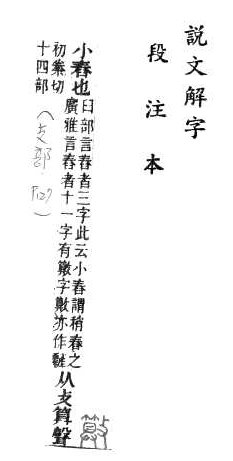 說文解字
段注本
小舂也
臼部言舂者三字此云小舂謂稍舂之
廣雅言舂者十一字有𣀔字𣀔亦作
从攴算聲
初絭切
十四部
(攴部 P127)